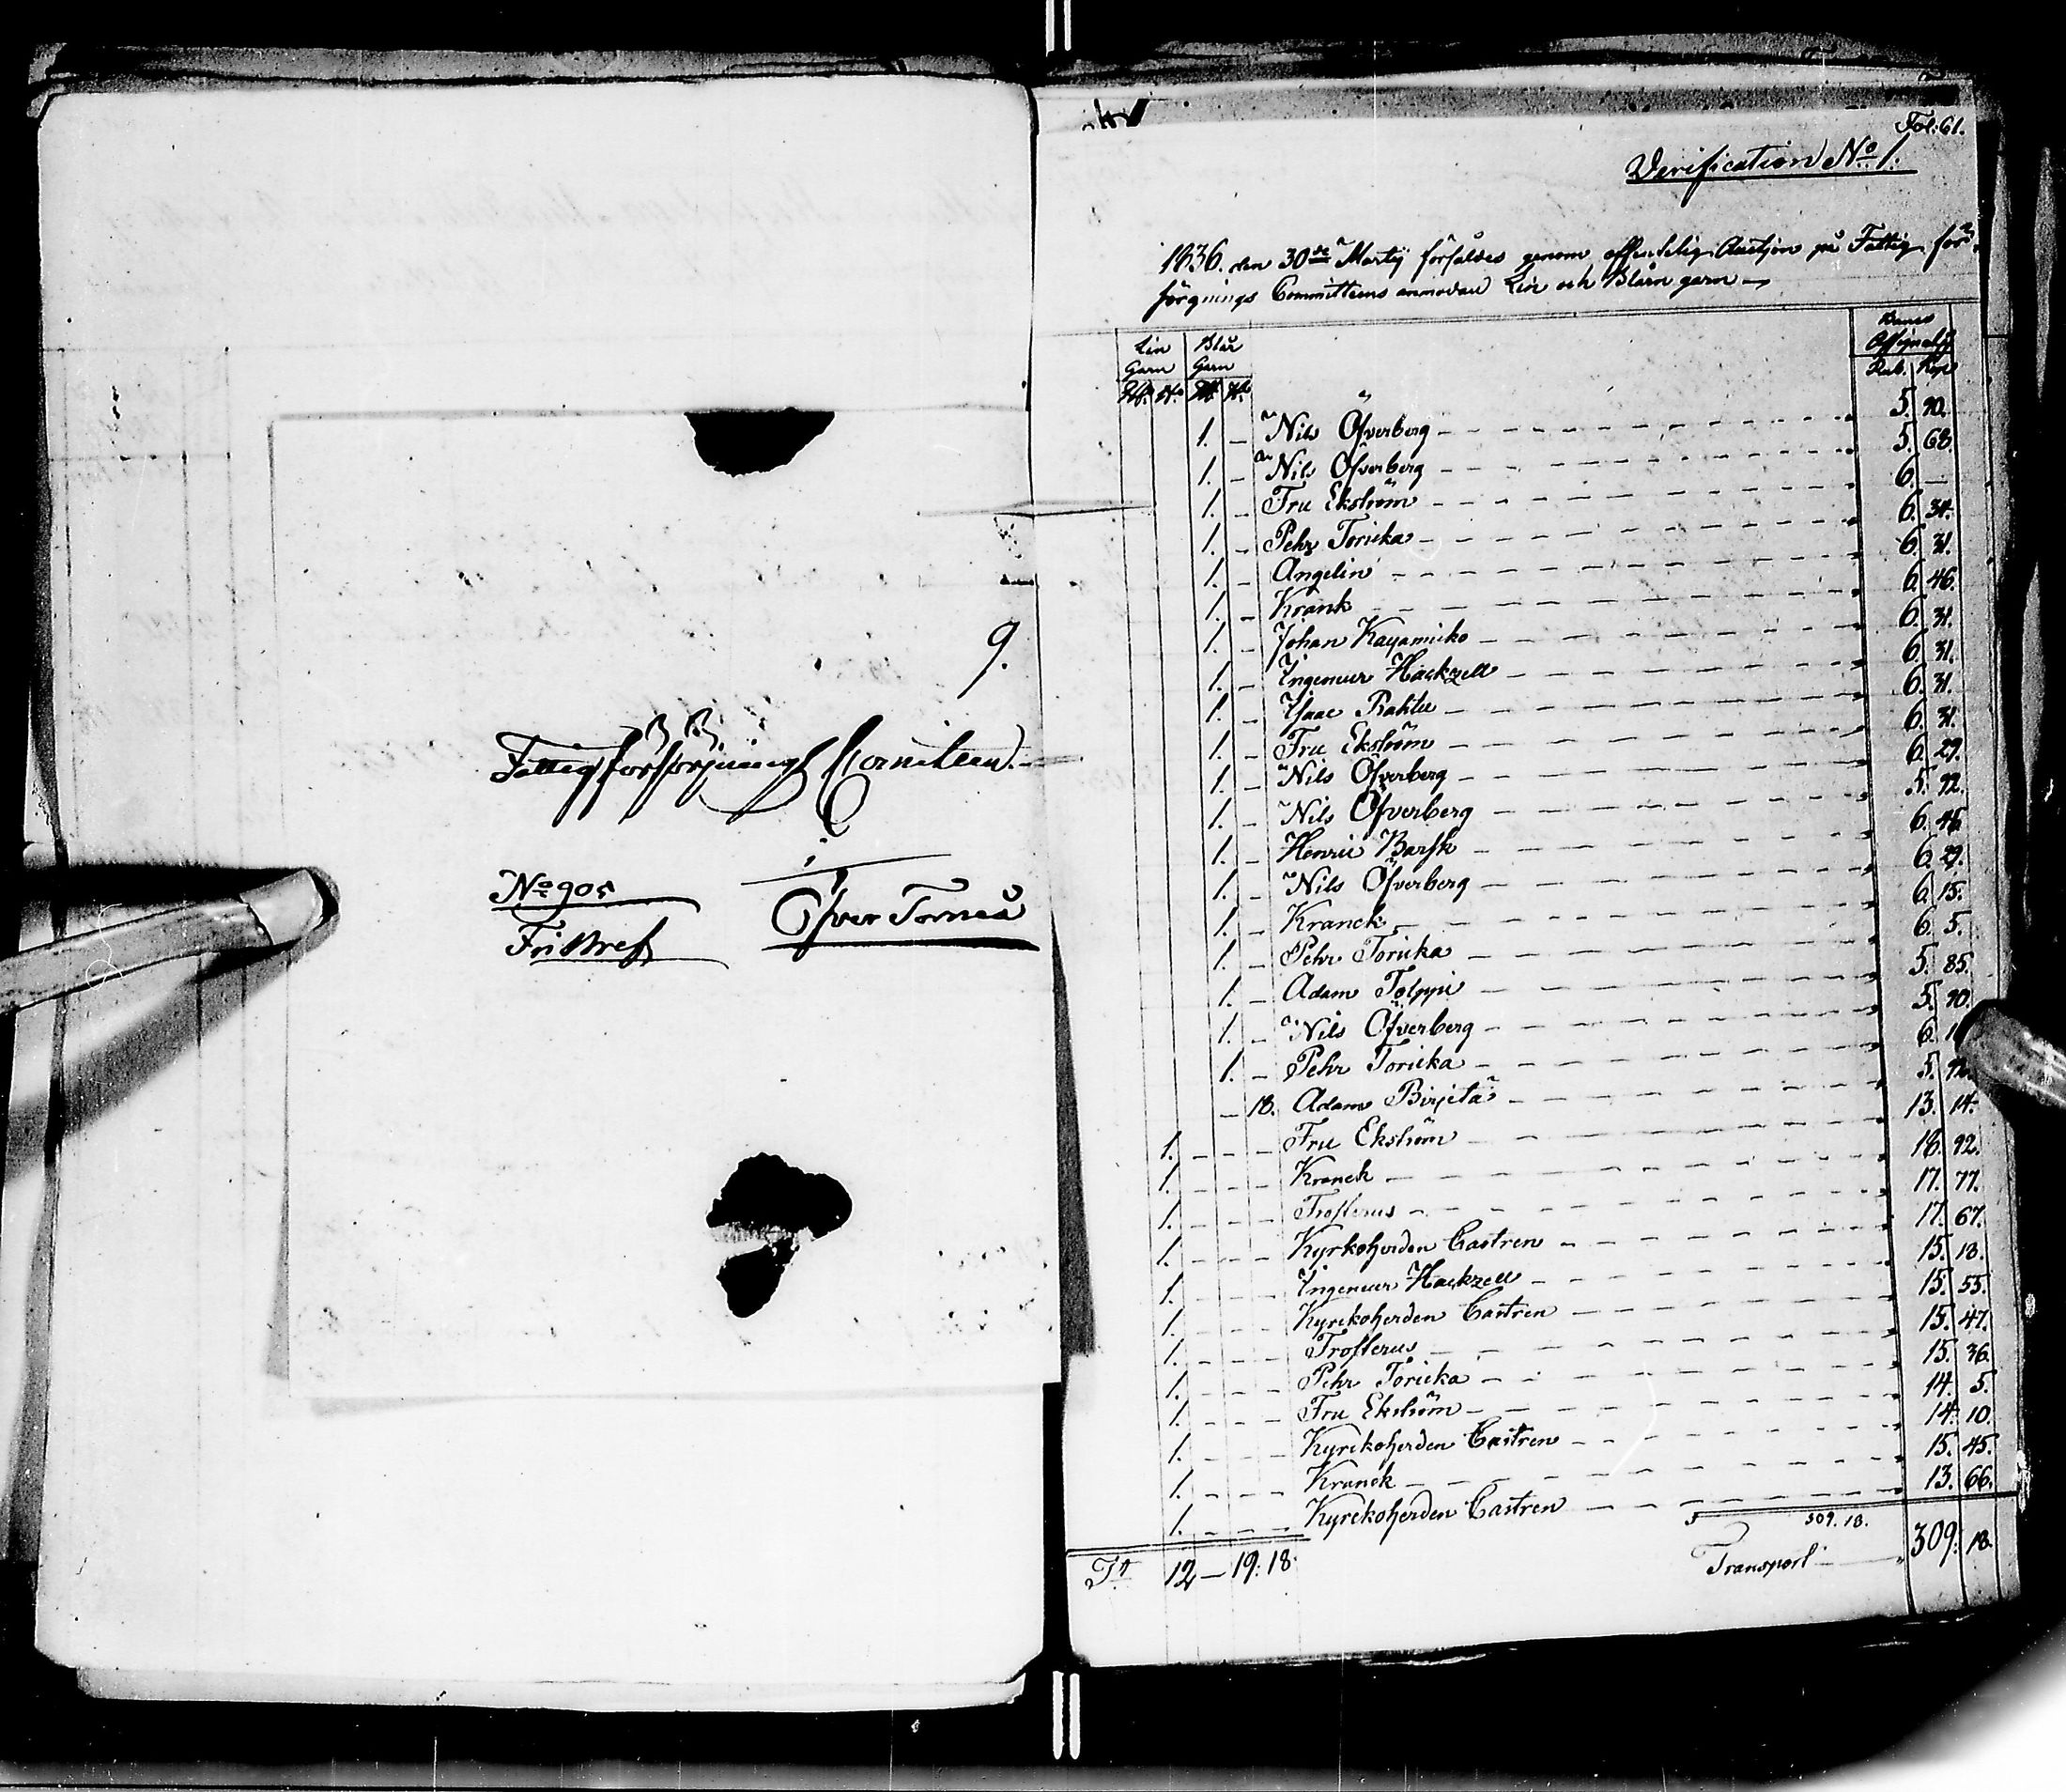 9.
Fattigförsörjnings Comiteen.
i
No 905
Öfver Torneå
Fribref
Fol: 61.
Verification No 1.
1836. den 30de Martij försåldes genom offentelig Auctjon på Fattig för-
sörgnings Committeens anmodan Lin och Blårn garn
Lin Garn Blår Garn Banco Assignat:r
Rub. Kop
1. — Nils Öfverberg — 5. 90.
1. — Nils Öfverberg — 5. 68.
1. — Fru Ekström — 6. —
1. — Pehr Toricka — 6. 34.
1. — Angelin — 6. 31.
1. — Krank — 6. 46.
1. — Johan Kayamicko — 6. 31.
1. — Ingenieur Hackzell — 6. 31.
1. — Isaac Rahtu — 6. 31.
1. — Fru Ekström — 6. 31.
1. — Nils Öfverberg — 6. 29.
1. — Nils Öfverberg — 5. 92.
1. — Henric Barsk — 6. 46.
1. — Nils Öfverberg — 6. 29.
1. — Kranck — 6. 15.
1. — Pehr Toricka — 6. 5.
1. — Adam Tolppi — 5. 85.
1. — Nils Öfverberg — 5. 90.
1. — Pehr Toricka — 6.
— 18. Adam Birjeta — 5.
1. — — — Fru Ekström — 13. 14.
1. — — — Kranck — 18. 92.
1. — — — Frosterus — 17. 77.
1. — — — Kyrkoherden Castren — 17. 67.
1. — — — Ingenieur Hackzell — 15. 18.
1. — — — Kyrckoherden Castren — 15. 55.
1. — — — Frosterus — 15. 47.
1. — — — Pehr Toricka — 15. 36.
1. — — — Fru Ekström — 14. 5.
1. — — — Kyrckoherden Castren — 14. 10.
1. — — — Kranck — 15. 45.
1. — — — Kyrckoherden Castren — 13. 66.
309. 18.
Tt 12 — 19. 18. Transport — 309. 18.